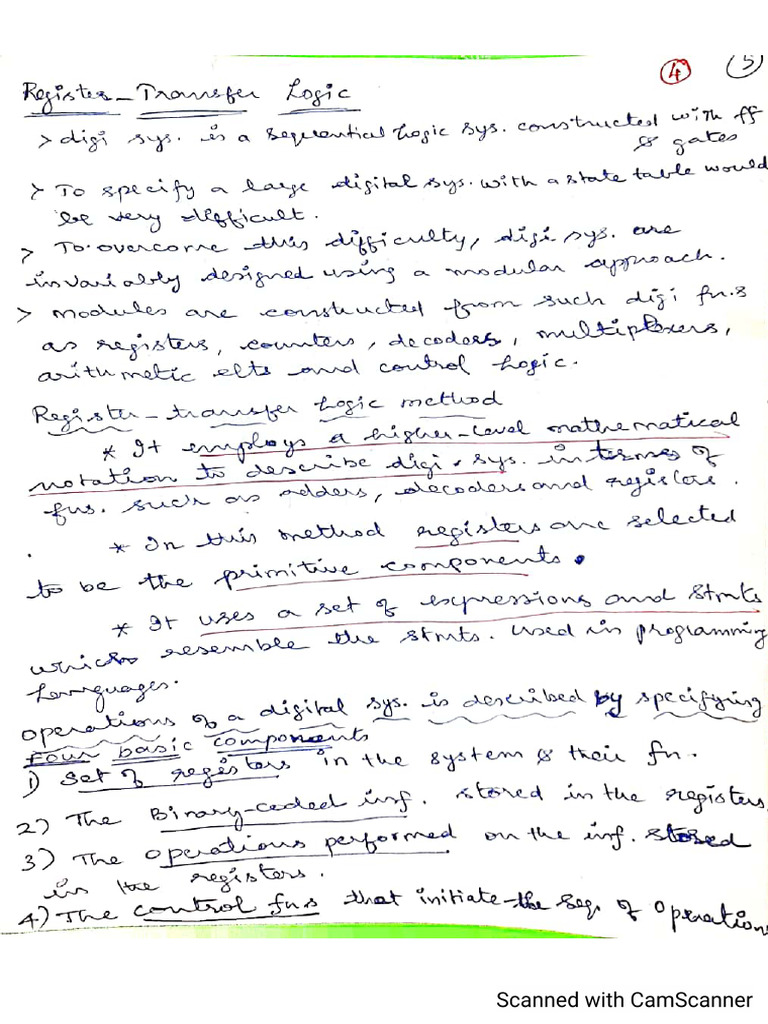 4 5
Register-Transfer Logic
> digi sys. is a sequential logic sys. constructed with ff
& gates
> To specify a large digital sys. with a state table would
be very difficult.
> To overcome this difficulty, digi. sys. are
invariably designed using a modular approach.
> modules are constructed from such digi fn.s
as registers, counters, decoders, multiplexers,
arithmetic elts and control logic.
Register-transfer logic method
* It employs a higher-level mathematical
notation to describe digi. sys. in terms of
fns. such as adders, decoders and registers.
* In this method registers are selected
to be the primitive components.
* It uses a set of expressions and stmts
which resemble the stmts. used in programming
languages.
operations of a digital sys. is described by specifying
Four basic components
1) Set of registers in the system & their fn.
2) The Binary-coded inf. stored in the registers
3) The operations performed on the inf. stored
in the registers.
4) The control fns that initiate the seq. of operations
Scanned with CamScanner